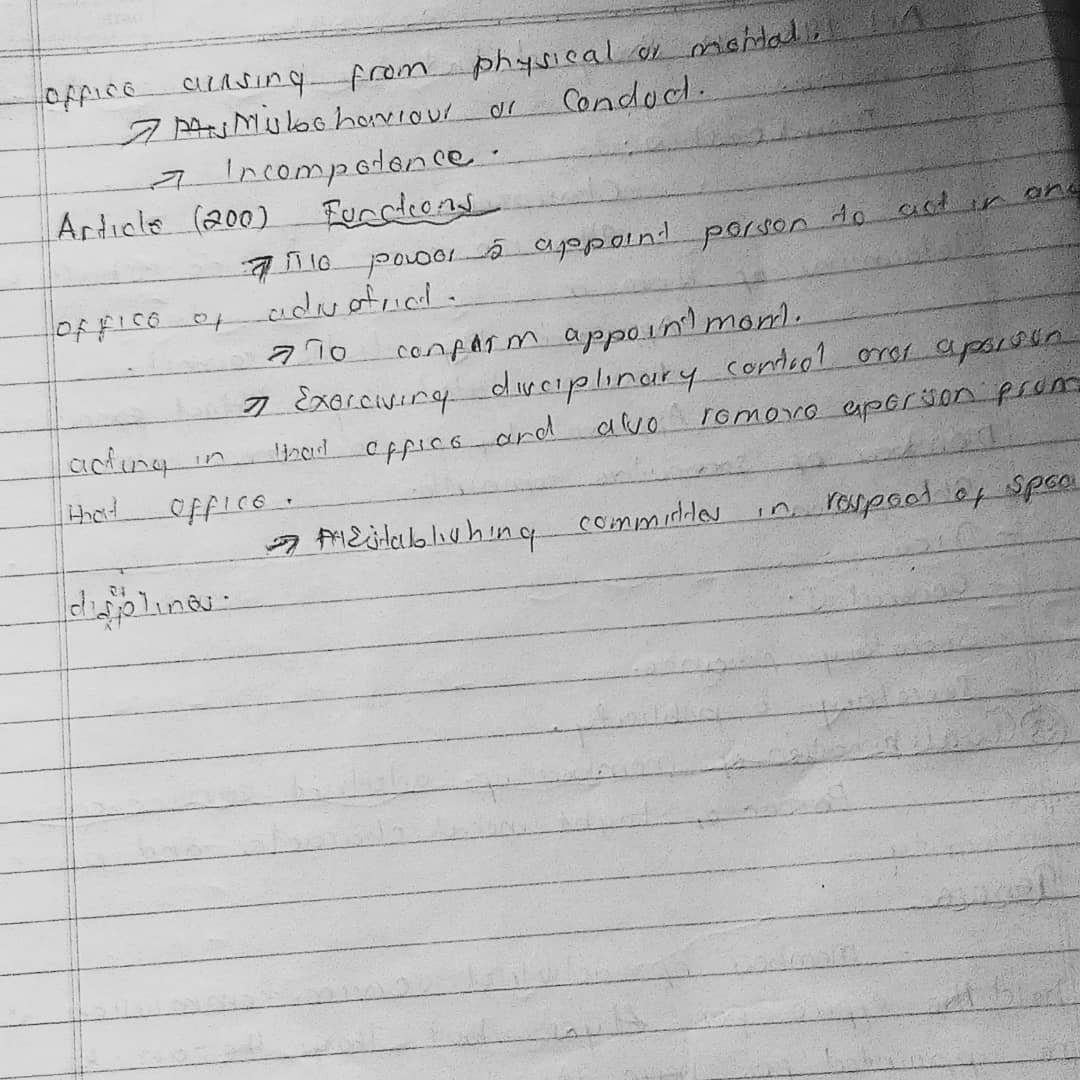 office arising from physical or mental
→ Misbehaviour or Conduct.
→ Incompetence.
Article (200) Functions
→ The power to appoint person to act in any
office of district.
→ To confirm appointment.
→ Exercising disciplinary control over a person
acting in that office and also remove a person from
that office.
→ Establishing committes in respect of spec
disiplines.